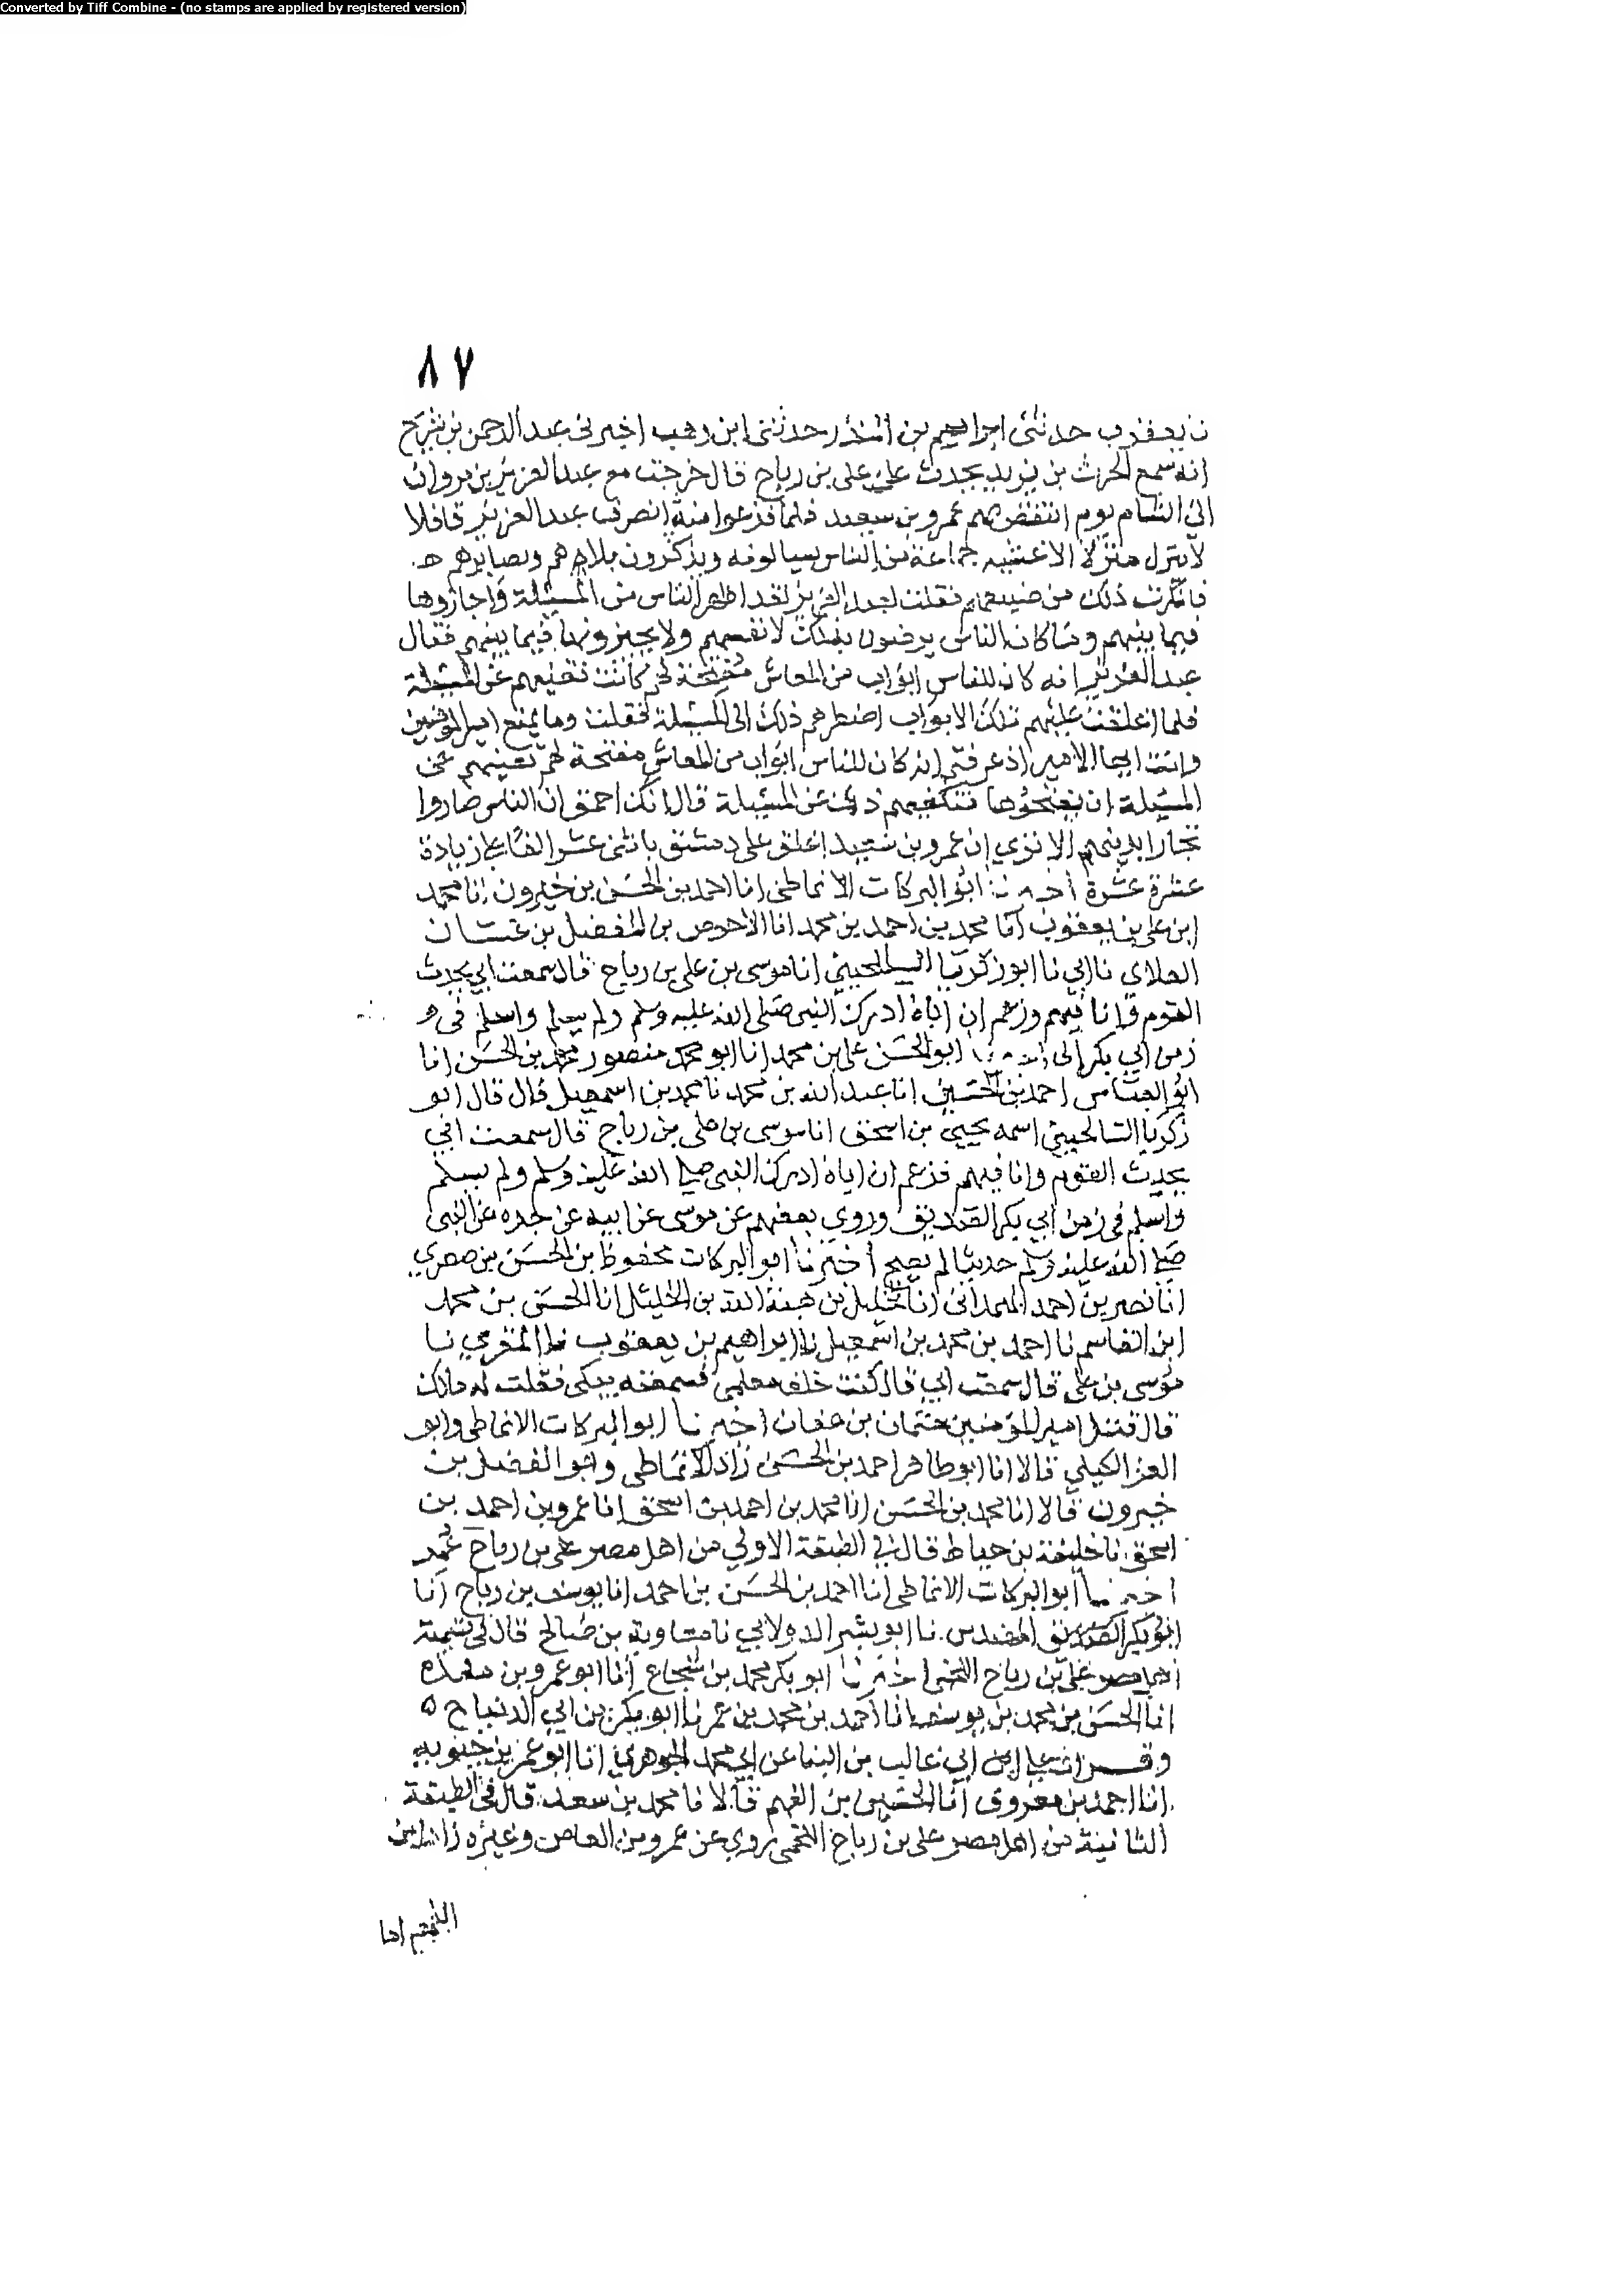 Converted by Tiff Combine - (no stamps are applied by registered version)
٨٧
ن يعقوب حدثني ابراهيم بن المنذر حدثني ابن وهب اخبرني عبد الرحمن بن شريح
انه سمع الحرث بن يزيد يحدث عن علي بن رباح قال خرجت مع عبد العزيز بن مروان
الى الشام يوم انتقض بهم عمرو بن سعيد فلما فزعوا منه انصرف عبد العزيز قافلا
لا ينزل منزلا الا غشيه جماعة من الناس يسالونه ويذكرون بلاهم
فانكرت ذلك من فقلت لعبد العزيز لقد الناس من المسئلة واجازوها
فيما بينهم وما كان الناس يرضون بذلك لانفسهم ولا يجيزونها فيما بينهم فقال
عبد العزيز انه كان للناس ابواب من المعاش مفتحة لهم كانت عن المسئلة
فلما اغلقت عليهم تلك الابواب اضطرهم ذلك الى المسئلة فقلت وما يمنع امير المومنين
وانت ايها الامير اذ عرفتم انه كان للناس ابواب من المعاش مفتحة لهم تغنيهم عن
المسئلة ان تفتحوها فتكفيهم ذلك عن المسئلة قال انك احمق ان الناس صاروا
تجارا بدينهم الا ترى ان عمرو بن سعيد اغلق على دمشق باثني عشر الفا على زيادة
عشرة عشرة ابو البركات الانماطي انا احمد بن الحسن بن خيرون انا محمد
ابن علي بن يعقوب انا محمد بن احمد بن محمد انا الاحوص بن المفضل بن غسان
الغلابي نا ابي نا ابو زكريا السالحيني انا موسى بن علي بن رباح قال سمعت ابي يحدث
القوم وانا فيهم وزعم ان اباه ادرك النبي صلى الله عليه وسلم ولم يسلم واسلم في
زمن ابي بكر ابو الحسن علي بن محمد انا ابو منصور محمد بن الحسن انا
ابو العباس احمد بن الحسين انا عبد الله بن محمد نا محمد بن اسمعيل قال قال ابو
زكريا السالحيني اسمه يحيى بن اسحق انا موسى بن علي بن رباح قال سمعت ابي
يحدث القوم وانا فيهم فزعم ان اباه ادرك النبي صلى الله عليه وسلم ولم يسلم
واسلم في زمن ابي بكر الصديق وروى بعضهم عن موسى عن ابيه عن جده عن النبي
صلى الله عليه وسلم حديثا لم يصح اخبرنا ابو البركات محفوظ بن الحسن بن صصري
انا نصر بن احمد الهمداني انا الخليل بن هبة الله بن الخليل انا الحسن بن محمد
ابن القاسم نا احمد بن محمد بن اسمعيل نا ابراهيم بن يعقوب نا المقري نا
موسى بن علي قال سمعت ابي قال كنت خلف معلمي فسمعته يبكي فقلت له مالك
قال قتل امير المؤمنين عثمان بن عفان اخبرنا ابو البركات الانماطي وابو
العز الكيلي قالا انا ابو طاهر احمد بن الحسن زاد الانماطي وابو الفضل بن
خيرون قالا انا محمد بن الحسن انا محمد بن احمد بن اسحق انا عمرو بن احمد بن
اسحق نا خليفة بن خياط قال في الطبقة الاولى من اهل مصر علي بن رباح
اخبرنا ابو البركات الانماطي انا احمد بن الحسن بن احمد انا يوسف بن رباح انا
ابو بكر المهندس نا ابو بشر الدولابي نا معاوية بن صالح قال في تسمية
اهل مصر علي بن رباح اللخمي اخبرنا ابو بكر محمد بن شجاع انا ابو عمرو بن منده
انا الحسن بن محمد بن يوسف انا احمد بن محمد بن عمر نا ابو بكر بن ابي الدنيا ح ه
وقرات على ابن ابي غالب بن البنا عن ابي محمد الجوهري انا ابو عمر بن حيويه
انا احمد بن معروف انا الحسين بن الفهم قالا نا محمد بن سعد قال في الطبقة
الثانية من اهل مصر علي بن رباح اللخمي روى عن عمرو بن العاص وغيره زاد ابن